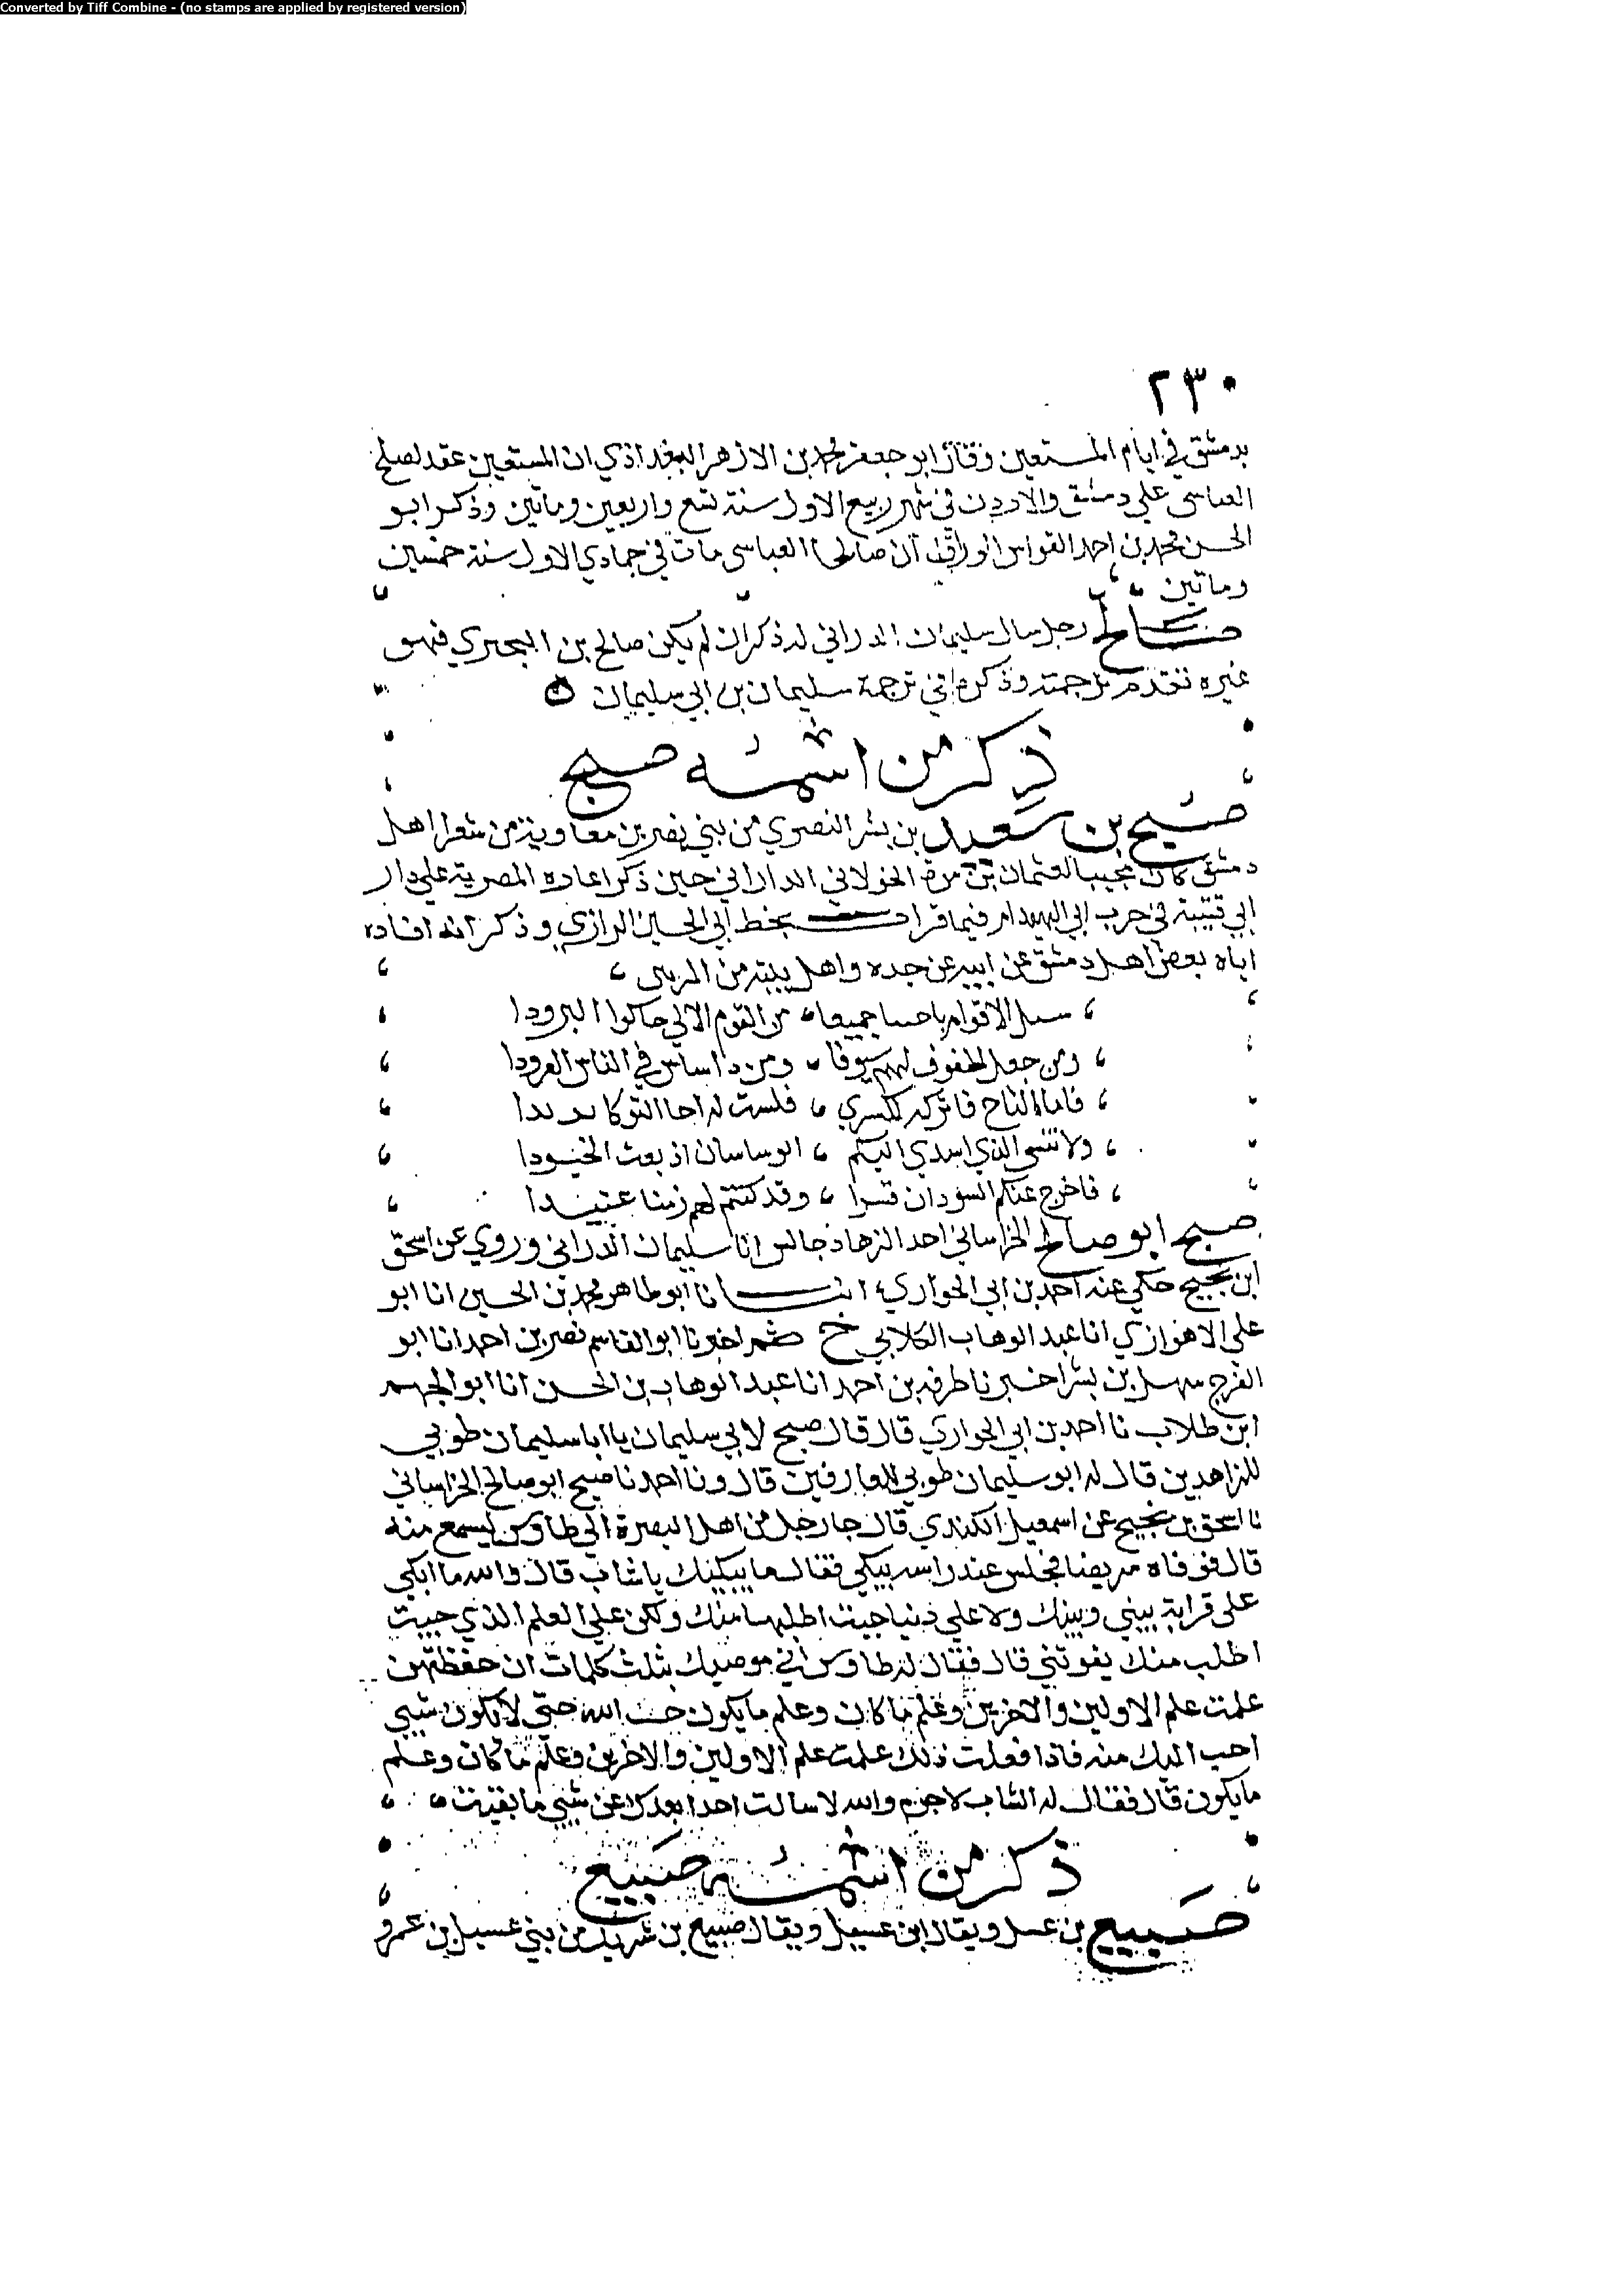 Converted by Tiff Combine - (no stamps are applied by registered version)
٢٣٠
بدمشق في ايام المستعين وقال ابو جعفر محمد بن الازهر البغداذي ان المستعين عقد لصلح
العباسي علي دمشق والاردن في شهر ربيع الاول سنة تسع واربعين وماتين وذكر ابو
الحسن محمد بن احمد القواس الوراق ان صالحا العباسي مات في جمادي الاول سنة خمسين
وماتين
صالح رجل سال سليمان الداراني له ذكر ان لم يكن صالح بن البحتري فهو
غيره تقدم ترجمته وذكره في ترجمة سليمان بن ابي سليمان
ذكر من اسمه صبح
صبح بن سعيد بن بشر النصري من بني نصر بن معاوية من شعرا اهل
دمشق كان مجيبا لعثمان بن مرة الخولاني الداراني حين ذكر اغاره المصرية علي دار
ابي قتيبة في حرب ابي الهيدام فيما قرات بخط ابي الحسين الرازي وذكر انه افاده
اياه بعض اهل دمشق عن ابيه عن جده واهل بيته من المرس
سل الاقوام يا جميعا من القوم الالي حاكوا البرودا
ومن جعل الحفوف لهم سيوفا ومن داساس في الناس العرودا
فاما التاح فاتركه لكسري فلست له اخا التوكا
ولا تنسي الذي اسدي اليكم ابو ساسان اذ بعث الجنودا
فاخرج عنكم السودان قسرا وقد كنتم لهم زمنا عبيدا
صبح ابو صالح الخراساني احد الزهاد جالس ابا سليمان الداراني وروي عن اسحق
ابن نجيح حكي عنه احمد بن ابي الحواري انبانا ابو طاهر محمد بن الحسين انا ابو
علي الاهوازي انا عبد الوهاب الكلابي ح ثم اخبرنا ابو القاسم نصر بن احمد انا ابو
الفرج سهل بن بشر اخبرنا طرفه بن احمد انا عبد الوهاب بن الحسن انا ابو الجهم
ابن طلاب نا احمد بن ابي الحواري قال قال صبح لابي سليمان يا ابا سليمان طوبي
للزاهدين قال له ابو سليمان طوبي للعارفين قال ونا احمد نا صبح ابو صالح الخراساني
نا اسحق بن نجيح عن اسمعيل الكندي قال جا رجل من اهل البصرة الي طاوس ليسمع منه
قال فوفاه مريضا فجلس عند راسه يبكي فقال ما يبكيك يا شاب قال والله ما ابكي
علي قرابة بيني وبينك ولا علي دنيا جيت اطلبها منك ولكن علي العلم الذي جيت
اطلب منك يفوتني قال فقال له طاوس اني موصيك بثلث كلمات ان حفظتهن
علمت علم الاولين والاخرين وعلم ما كان وعلم ما يكون خف الله حتي لا يكون شيي
احب اليك منه فاذا فعلت ذلك علمت علم الاولين والاخرين وعلم ما كان وعلم
ما يكون قال فقال له الشاب لا جرم والله لا سالت احدا بعدك عن شيي ما بقيت
ذكر من اسمه صبيغ
صبيغ بن عسل ويقال ابن عسيل ويقال صبيغ بن شريك من بني عسيل بن عمرو